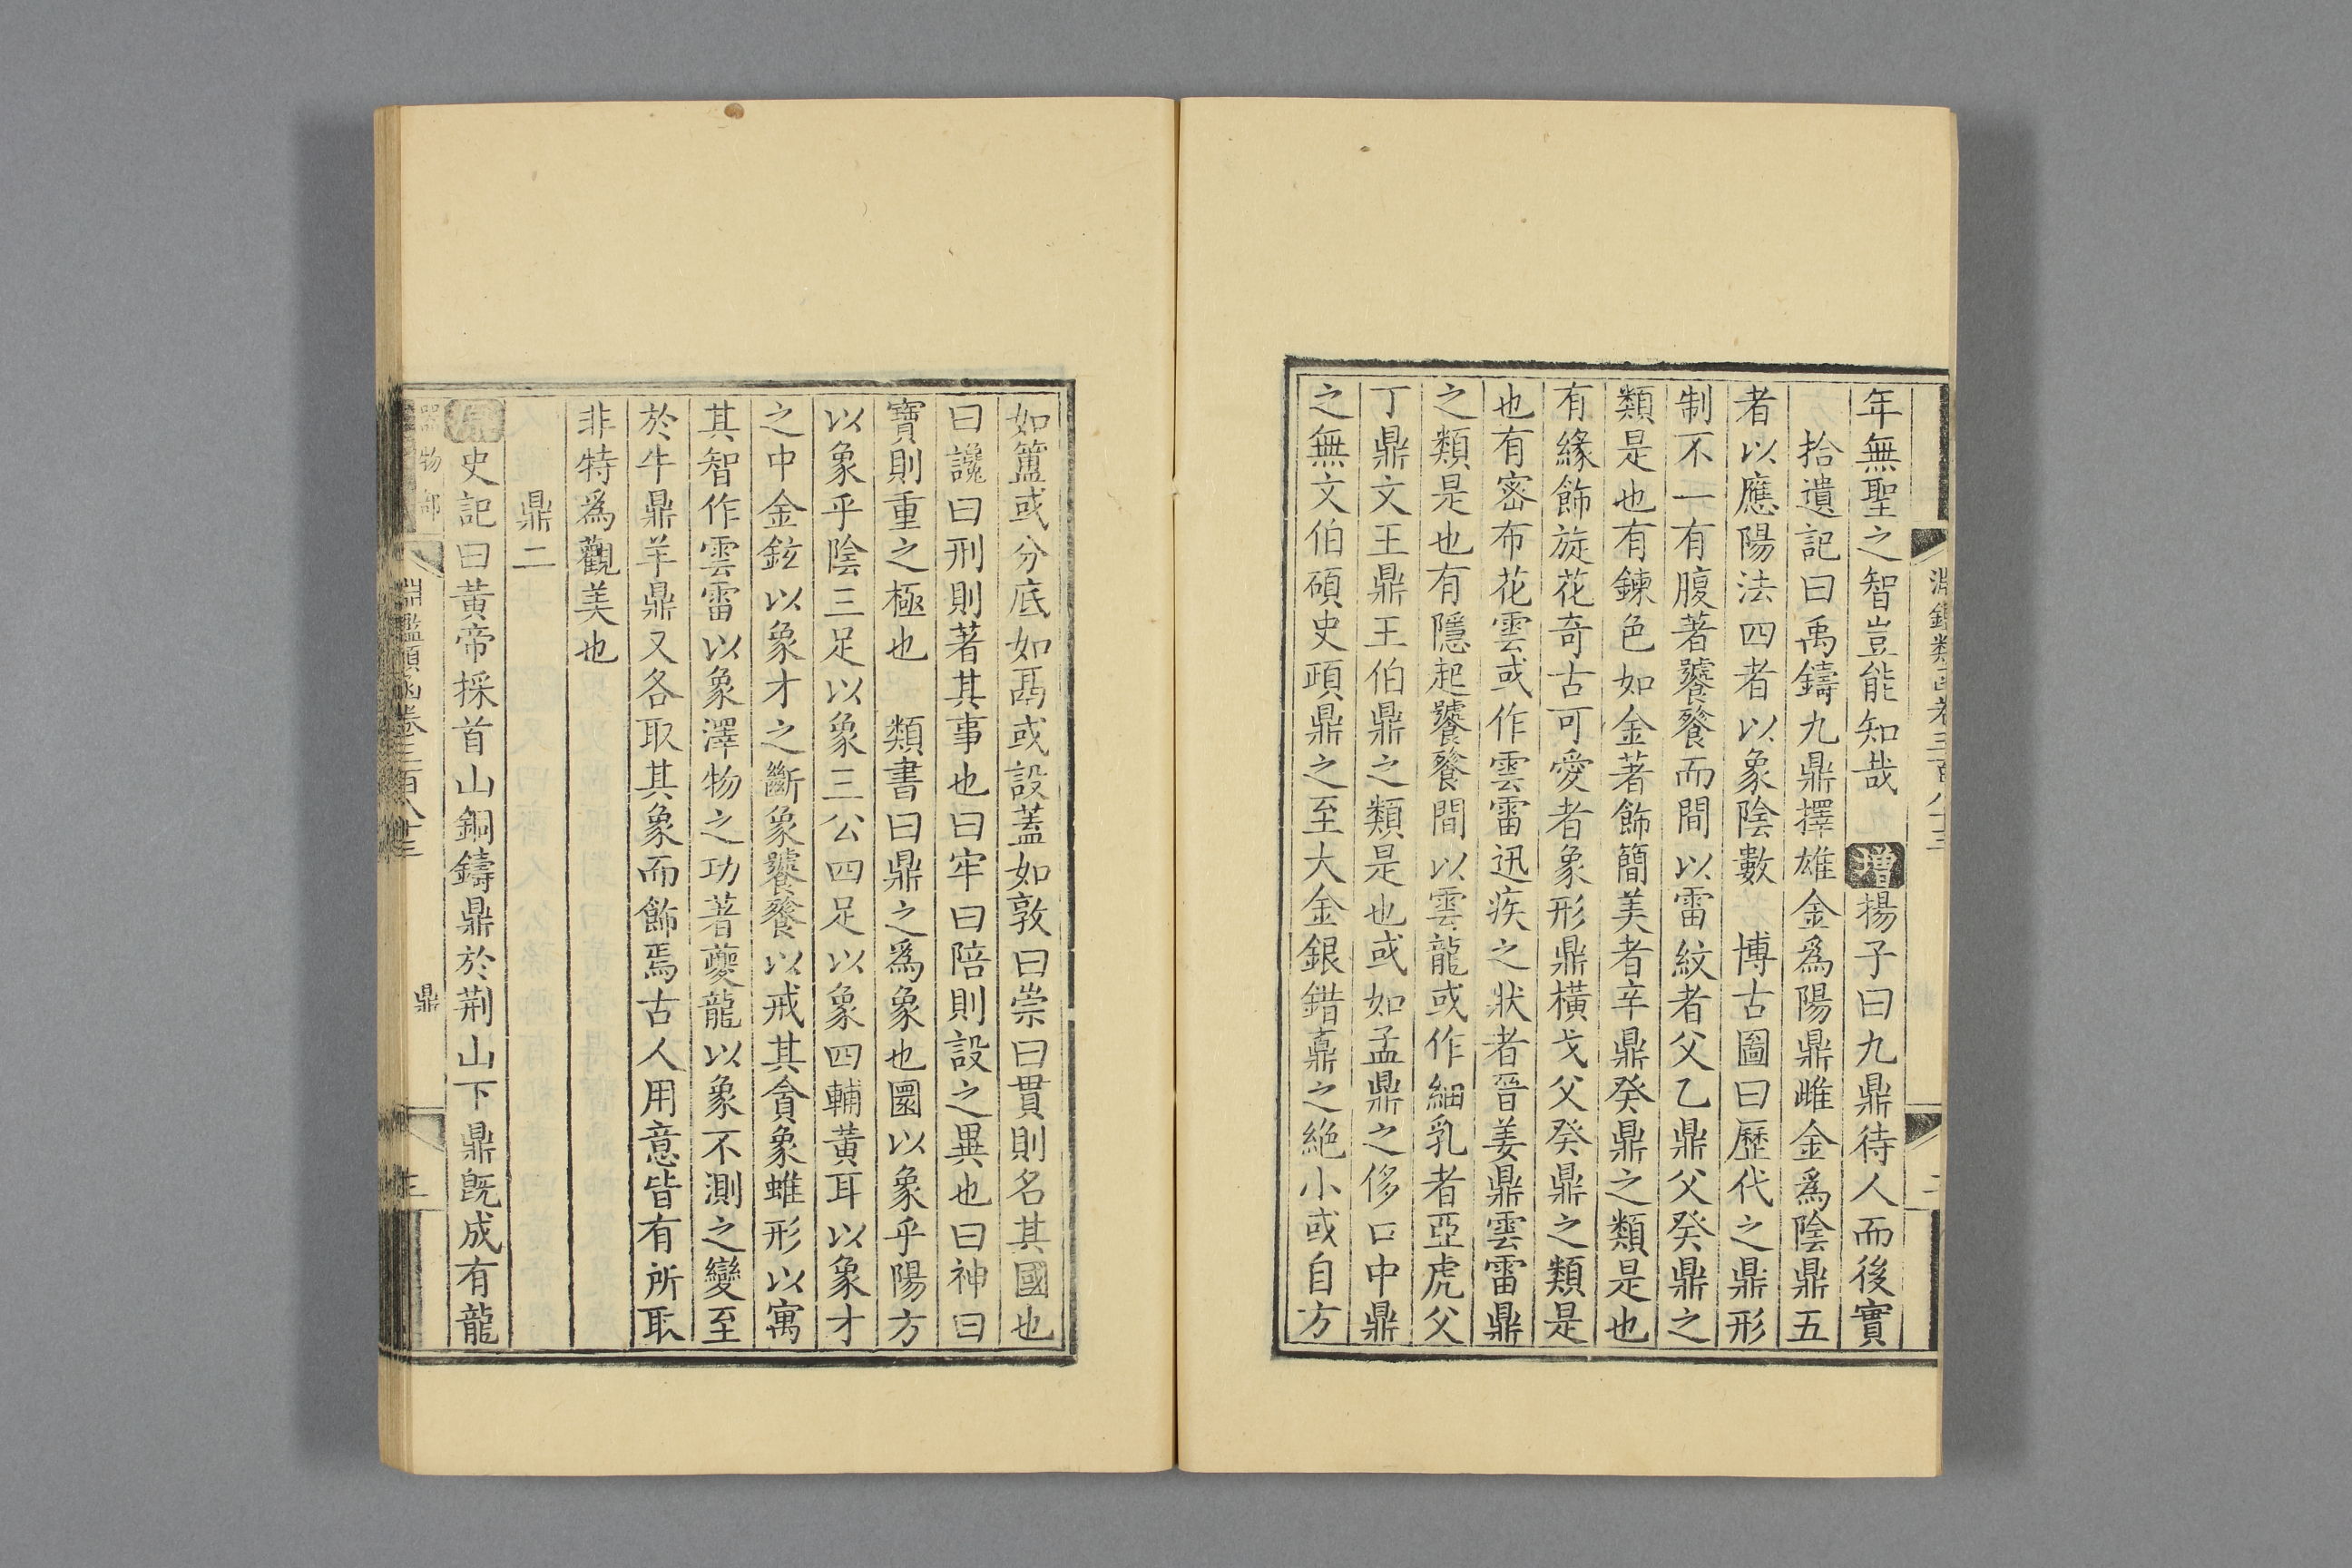 淵鑑類函卷三百八十三
二
年無聖之智豈能知哉 增揚子曰九鼎待人而後實
拾遺記曰禹鑄九鼎擇雄金爲陽鼎雌金爲陰鼎五
者以應陽法四者以象陰數 博古圖曰歷代之鼎形
制不一有腹著饕餮而間以雷紋者父乙鼎父癸鼎之
類是也有鍊色如金著飾簡美者辛鼎癸鼎之類是也
有緣飾旋花奇古可愛者象形鼎橫戈父癸鼎之類是
也有密布花雲或作雲雷迅疾之狀者晉姜鼎雲雷鼎
之類是也有隱起饕餮間以雲龍或作細乳者亞虎父
丁鼎文王鼎王伯鼎之類是也或如孟鼎之侈口中鼎
之無文伯碩史頙鼎之至大金銀錯鼒之絶小或自方
如簠或分底如鬲或設蓋如敦曰崇曰貫則名其國也
曰讒曰刑則著其事也曰牢曰陪則設之異也曰神曰
寶則重之極也 類書曰鼎之爲象也圜以象乎陽方
以象乎陰三足以象三公四足以象四輔黃耳以象才
之中金鉉以象才之斷象饕餮以戒其貪象蜼形以寓
其智作雲雷以象澤物之功著夔龍以象不測之變至
於牛鼎羊鼎又各取其象而飾焉古人用意皆有所取
非特爲觀美也
鼎二
原史記曰黃帝採首山銅鑄鼎於荆山下鼎旣成有龍
器物部
淵鑑類函卷三百八十三
鼎
三